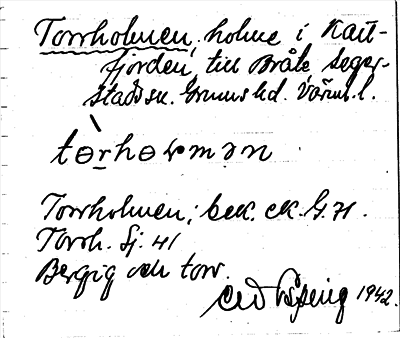 Torrholmen, holme i Katt-
fjorden, till Bråte Seger-
stads sn. Grums hd. Värml. l.
tòrholmən
Torrholmen; bek. ek. G. 71.
Torrh. Sj. 41
Bergig och torr.
1942.